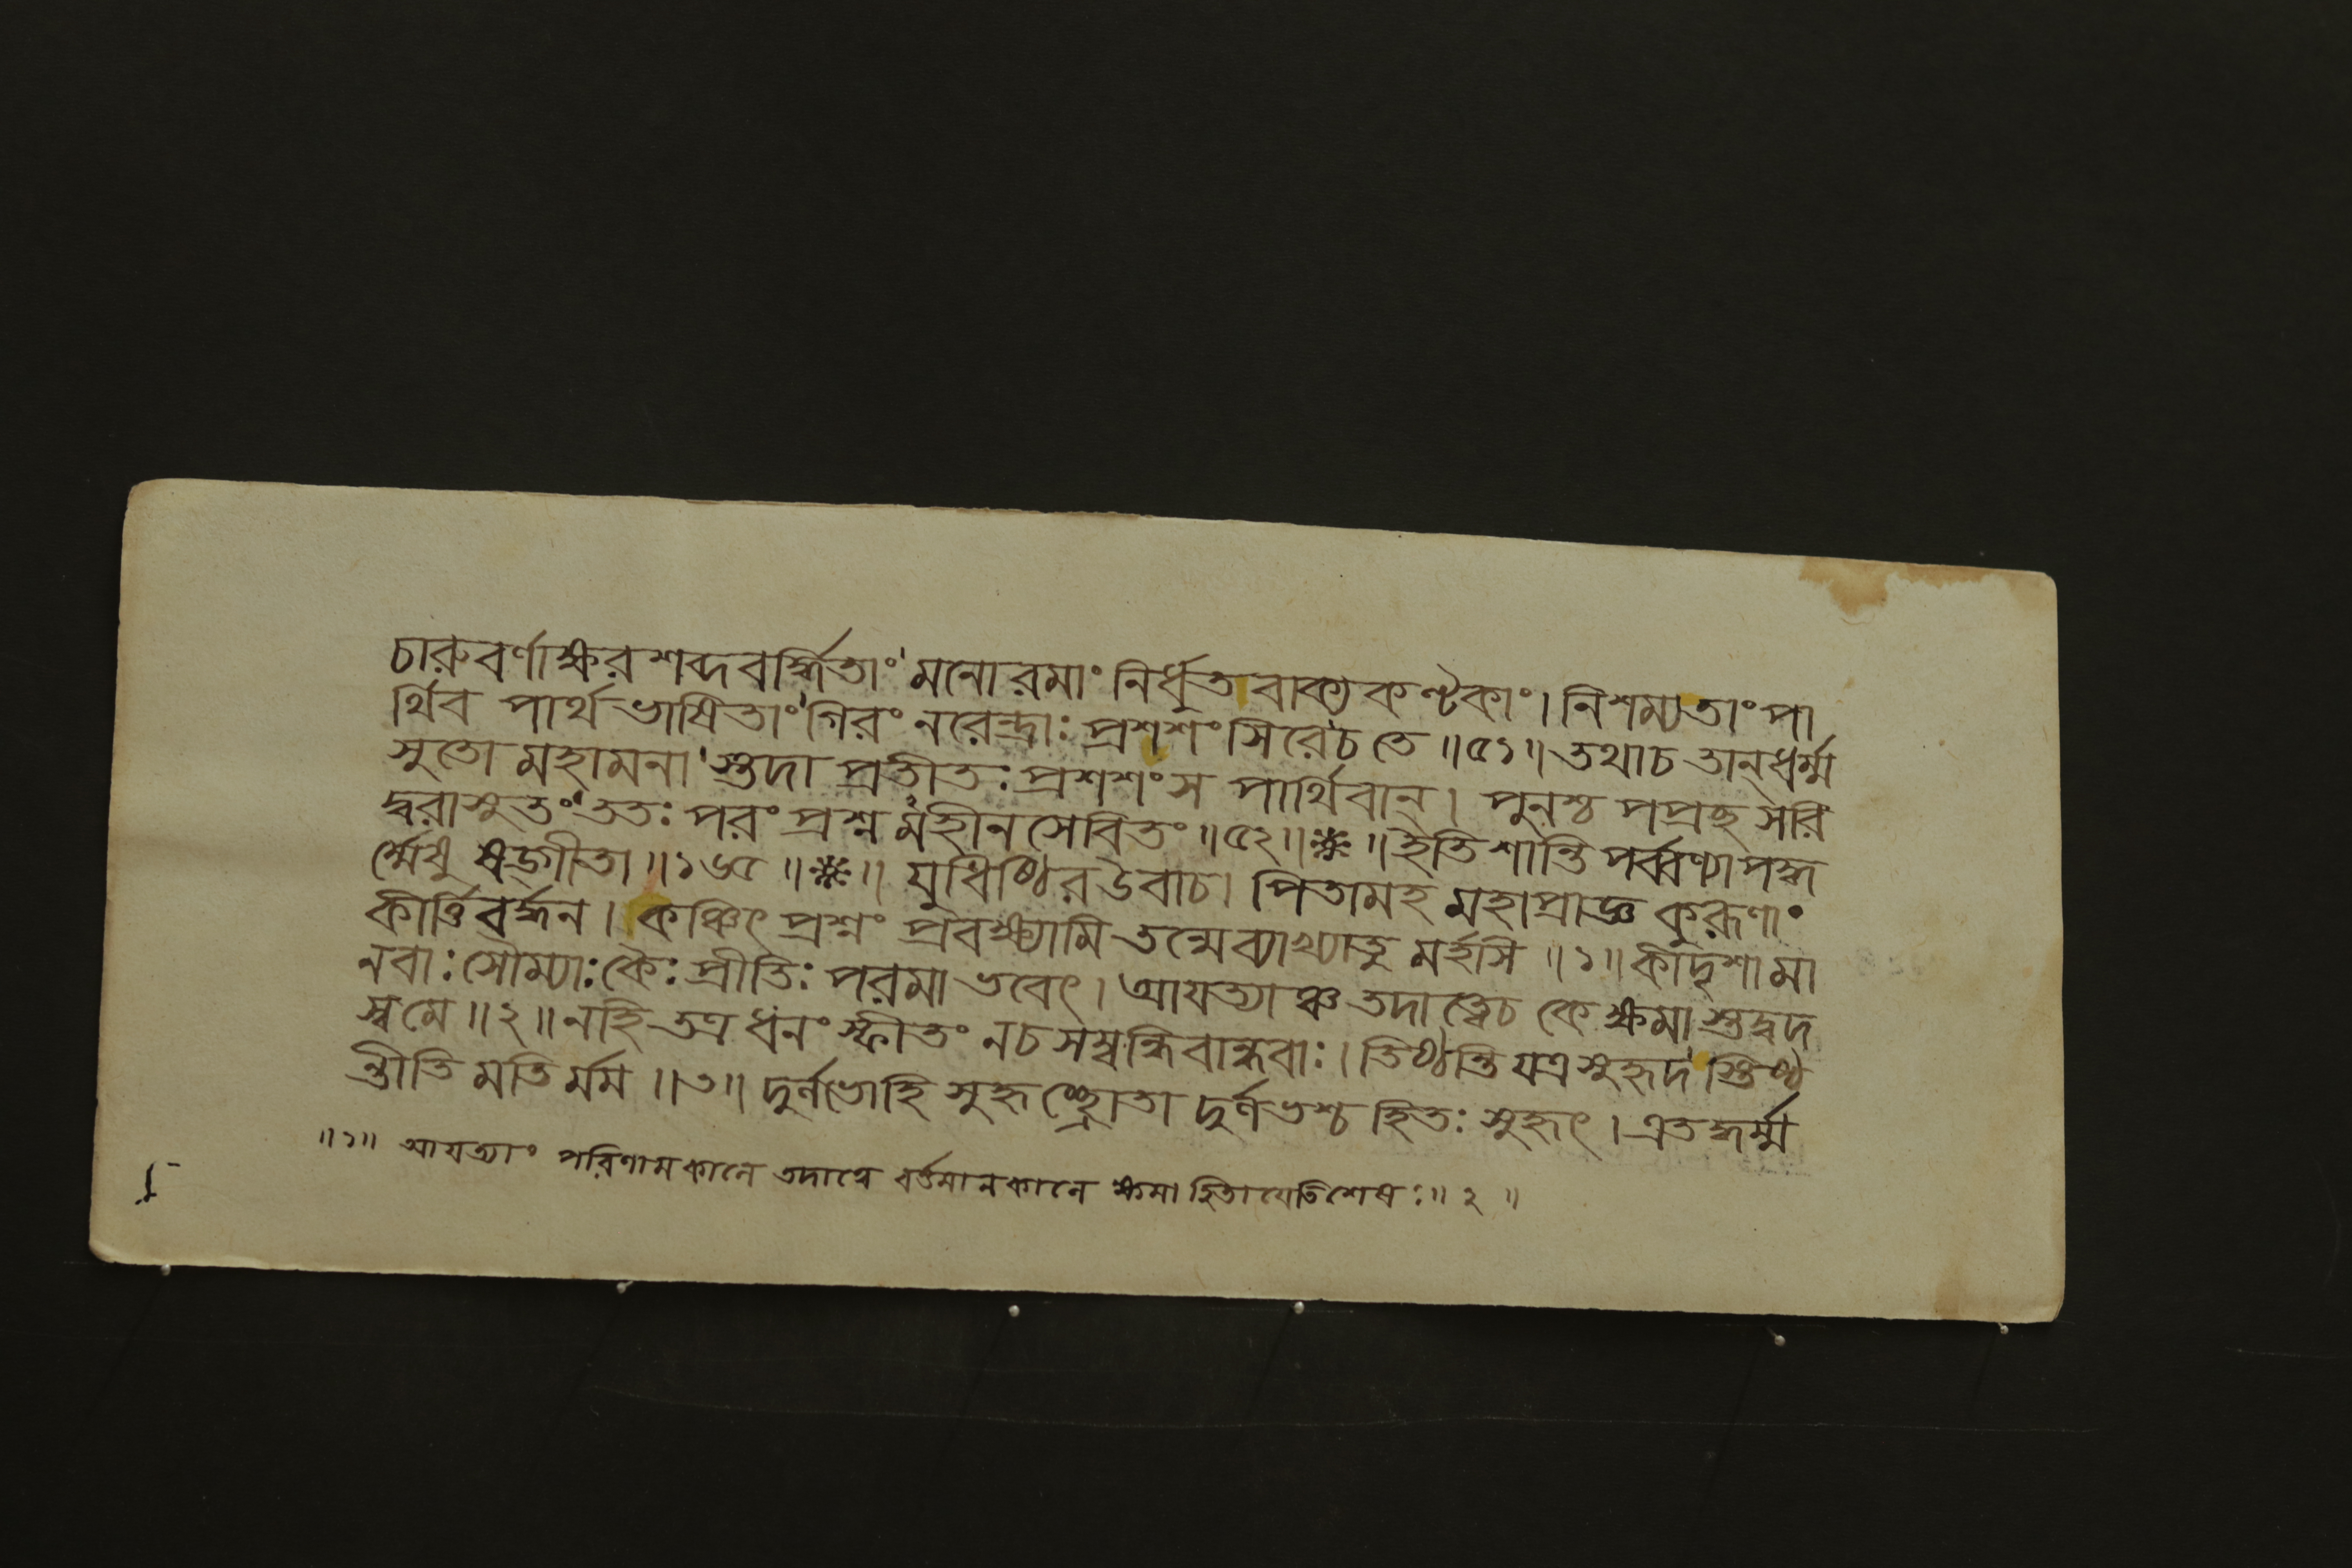 চারুবর্ণাক্ষরশব্দবর্দ্ধিতাং মনোরমাং নির্ধুতবাক্যকণ্টকাং। নিশম্যতাং পা
র্থিব পার্থভাষিতাং গিরং নরেন্দ্রাঃ প্রশশংসিরেচ তে ॥৫১॥ তথাচ তান্ধর্ম্ম
সুতো মহামনা স্তদা প্রতীতঃ প্রশশংস পার্থিবান্। পুনশ্চ পপ্রচ্ছ সরি
দ্বরাসুতং ততঃ পরং প্রশ্ন মহীনসেবিতং ॥৫২॥❋॥ ইতি শান্তিপর্ব্বণ্যাপদ্ধ
র্ম্মেষু ষড়্গীতা ॥১৬৫॥❋॥ যুধিষ্ঠির উবাচ। পিতামহ মহাপ্রাজ্ঞ কুরূণাং
কীর্ত্তিবর্দ্ধন। কঞ্চিৎ প্রশ্নং প্রবক্ষ্যামি তন্মেব্যাখ্যাতু মর্হসি ॥১॥ কীদৃশা মা
নবাঃ সৌম্যাঃ কৈঃ প্রীতিঃ পরমা ভবেৎ। আযত্যাঞ্চ তদাত্বেচ কে ক্ষমা স্তদ্বদ
স্বমে ॥২॥ নহি তত্র ধনং স্ফীতং নচ সম্বন্ধিবান্ধবাঃ। তিষ্ঠন্তি যত্র সুহৃদ স্তিষ্ঠ
ন্তীতি মতি র্মম ॥৩॥ দুর্লভোহি সুহৃচ্ছ্রোতা দুর্লভশ্চ হিতঃ সুহৃৎ। এতদ্ধর্ম্ম
॥১॥ আযত্যাং পরিণামকালে তদাত্বে বর্তমানকালে ক্ষমা হিতাযেতিশেষঃ ॥২॥